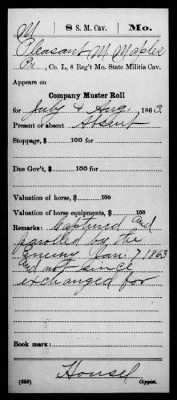 M 8 S. M. Cav. Mo.
Pleasant M Maples
Pr., Co. L, 8 Reg't Mo. State Militia Cav.
Appears on
Company Muster Roll
for July & Aug, 1863.
Present or absent Absent
Stoppage, $ 100 for
Due Gov't, $ 100 for
Valuation of horse, $ 100
Valuation of horse equipments, $ 100
Remarks: Captured and
parolled by the
enemy Jan. 7 1863
and not since
exchanged for
Book mark:
Housel
(358) Copyist.